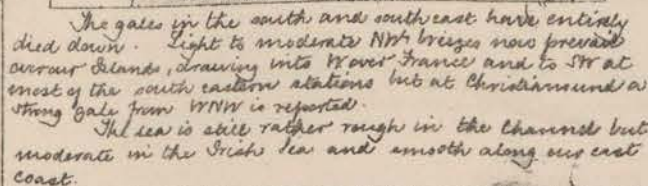 The gales in the south and southeast have entirely
died down. Light to moderate NWly breezes now prevail
over our Islands, drawing into W over France and to SW at
most of the south eastern stations but at Christiansund a
strong gale from WNW is reported.
The sea is still rather rough in the Channel but
moderate in the Irish Sea and smooth along our east
coast.